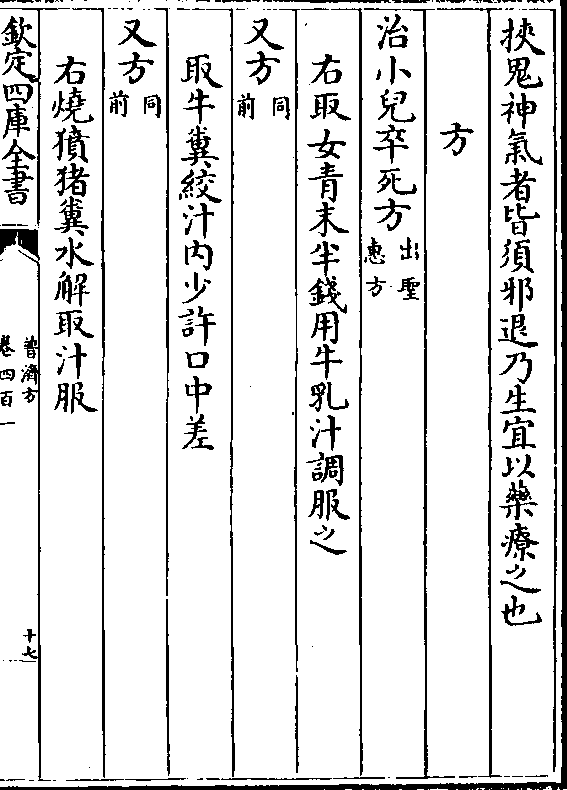 挾鬼神氣者皆須邪退乃生宜以藥療之也
方
治小兒卒死方出聖惠方
右取女青末半錢用牛乳汁調服之
又方同前
取牛糞絞汁内少許口中差
又方同前
右燒豶猪糞水解取汁服
欽定四庫全書
普濟方
卷四百一
十七